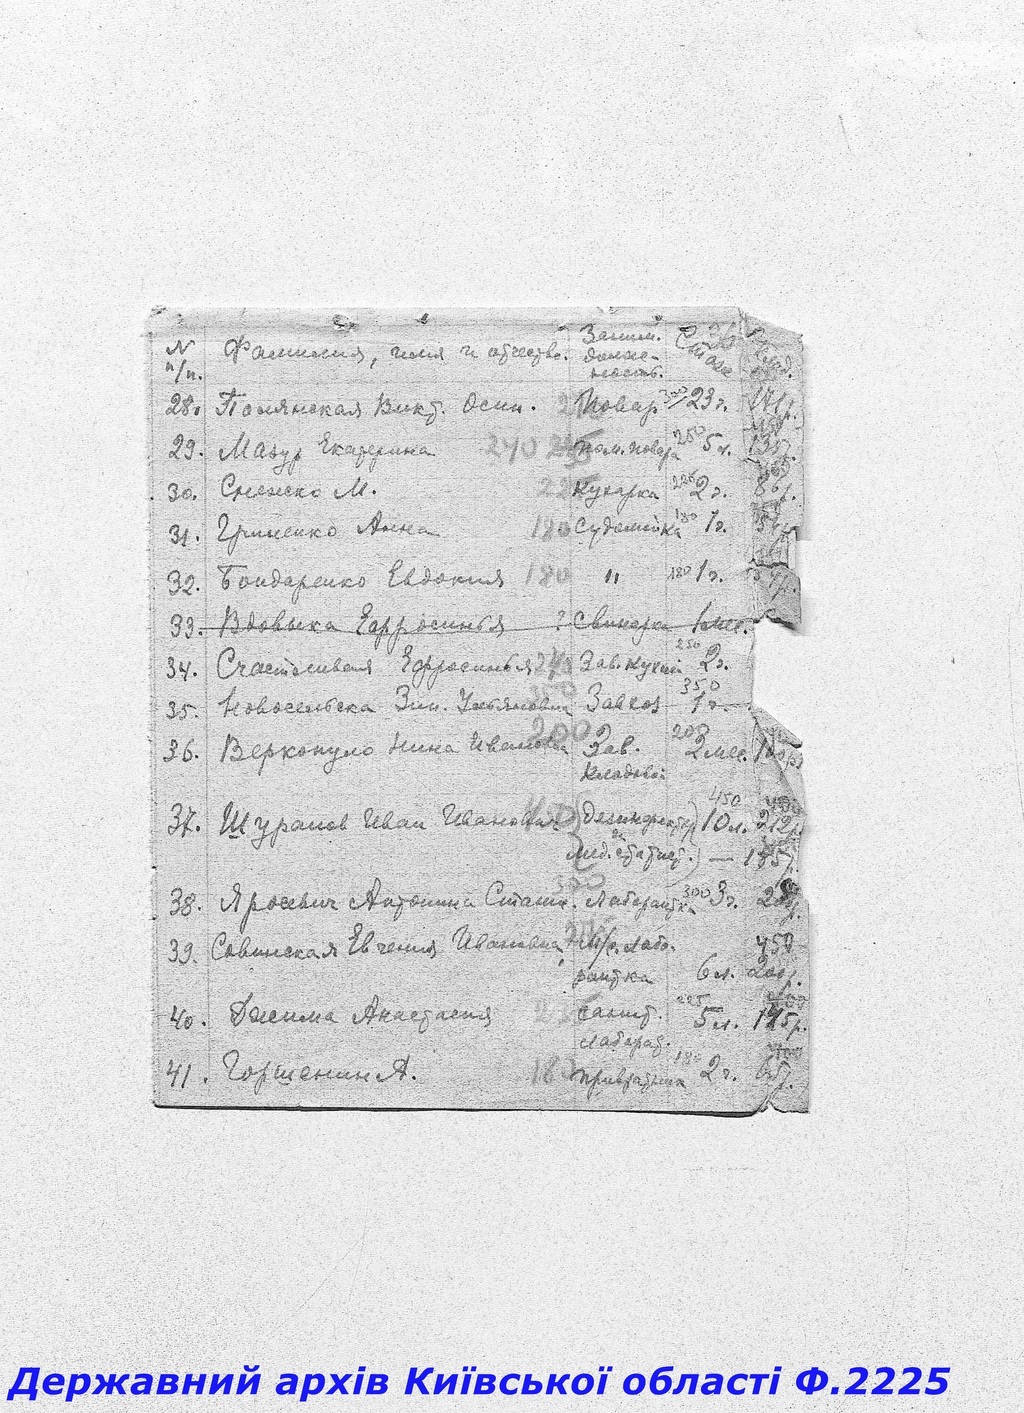 N п/п. Фамилия, имя и отчество. Заним. должность. Стаж
28. Полянская Викт. Осип. Повар 300 23 г. 171р.
29. Мазур Екатерина 240 пом. повара 250 5 л.
30. М. Кухарка 225 2 г.
31. Гриненко Анна 180 Судомойка 180 1 г.
32. Бондаренко Евдокия 180 " 180 1 г.
33. Вдовыка Ефросинья ? Свинарка 1 мес.
34. Счастливая Ефросинья Зав. кухней 250 2 г.
35. Новосельска Зин. Ульяновна 350 Завхоз 350 1 г.
36. Верхопуло Нина Ивановна 200 Зав. 200 2 мес. 100р
кладовой
37. Шурапов Иван Иванович Дезинфектор 450 10 л. 212р.
и мед. статист.) —
38. Яросевич Антонина Стан. 300 Лаборантка 300 3 г.
39. Совинская Евгения Ивановна лабо- 450
рантка 6 л. 200р.
40. Джима Анастасия санит. 225 5 л. 175р.
лаборат.
41. Горшенин А. 180 привратник 180 2 г.
Державний архів Київської області Ф.2225